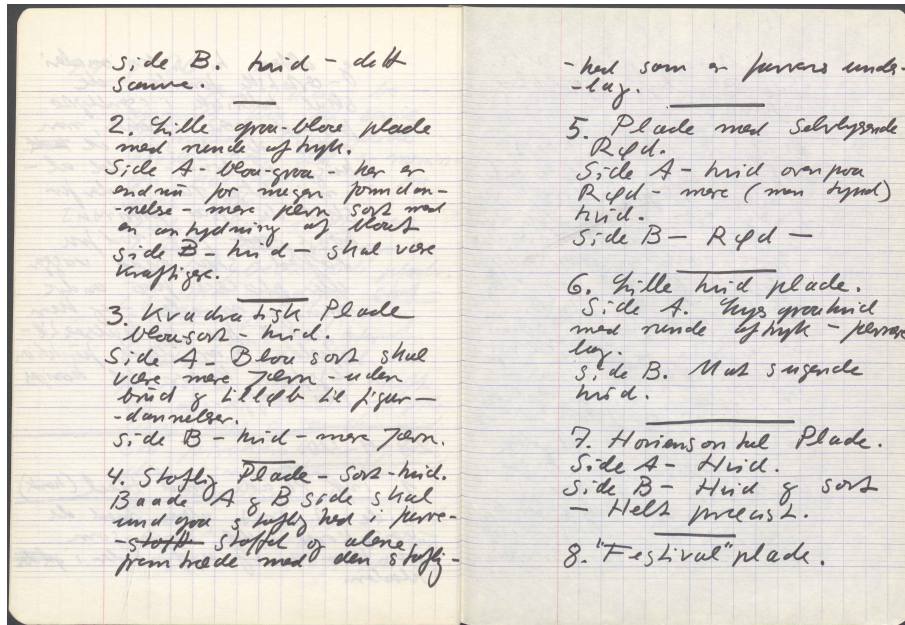 Side B. hvid - dett
samme.
2. Lille graa-blaa plade
med runde aftryk.
Side A - blaa-graa - her er
endnu for megen formdan-
-nelse - mere jævn sort med
en antydning af blaat
Side B - hvid - skal være
kraftigere.
3. Kvadratisk Plade
blaasort - hvid.
Side A - Blaa sort skal
være mere Jævn - uden
brud og tilløb til figur-
-dannelser.
Side B - hvid - mere Jævn.
4. Stoflig Plade - sort-hvid.
Baade A og B side skal
undgaa stoflighed i farve-
-stoff stoffet og alene
fremtræde med den stoflig-
-hed som er farvens under-
-lag.
5. Plade med Selvlysende
Rød.
Side A - hvid ovenpaa
Rød - mere (men tynd)
hvid.
Side B - Rød -
6. Lille hvid plade.
Side A. Lys graahvid
med runde aftryk - farvere
lag.
Side B. Mat sugende
hvid.
7. Horisontal Plade.
Side A - Hvid.
Side B - Hvid og sort
- Helt præcist.
8. "Festival" plade.